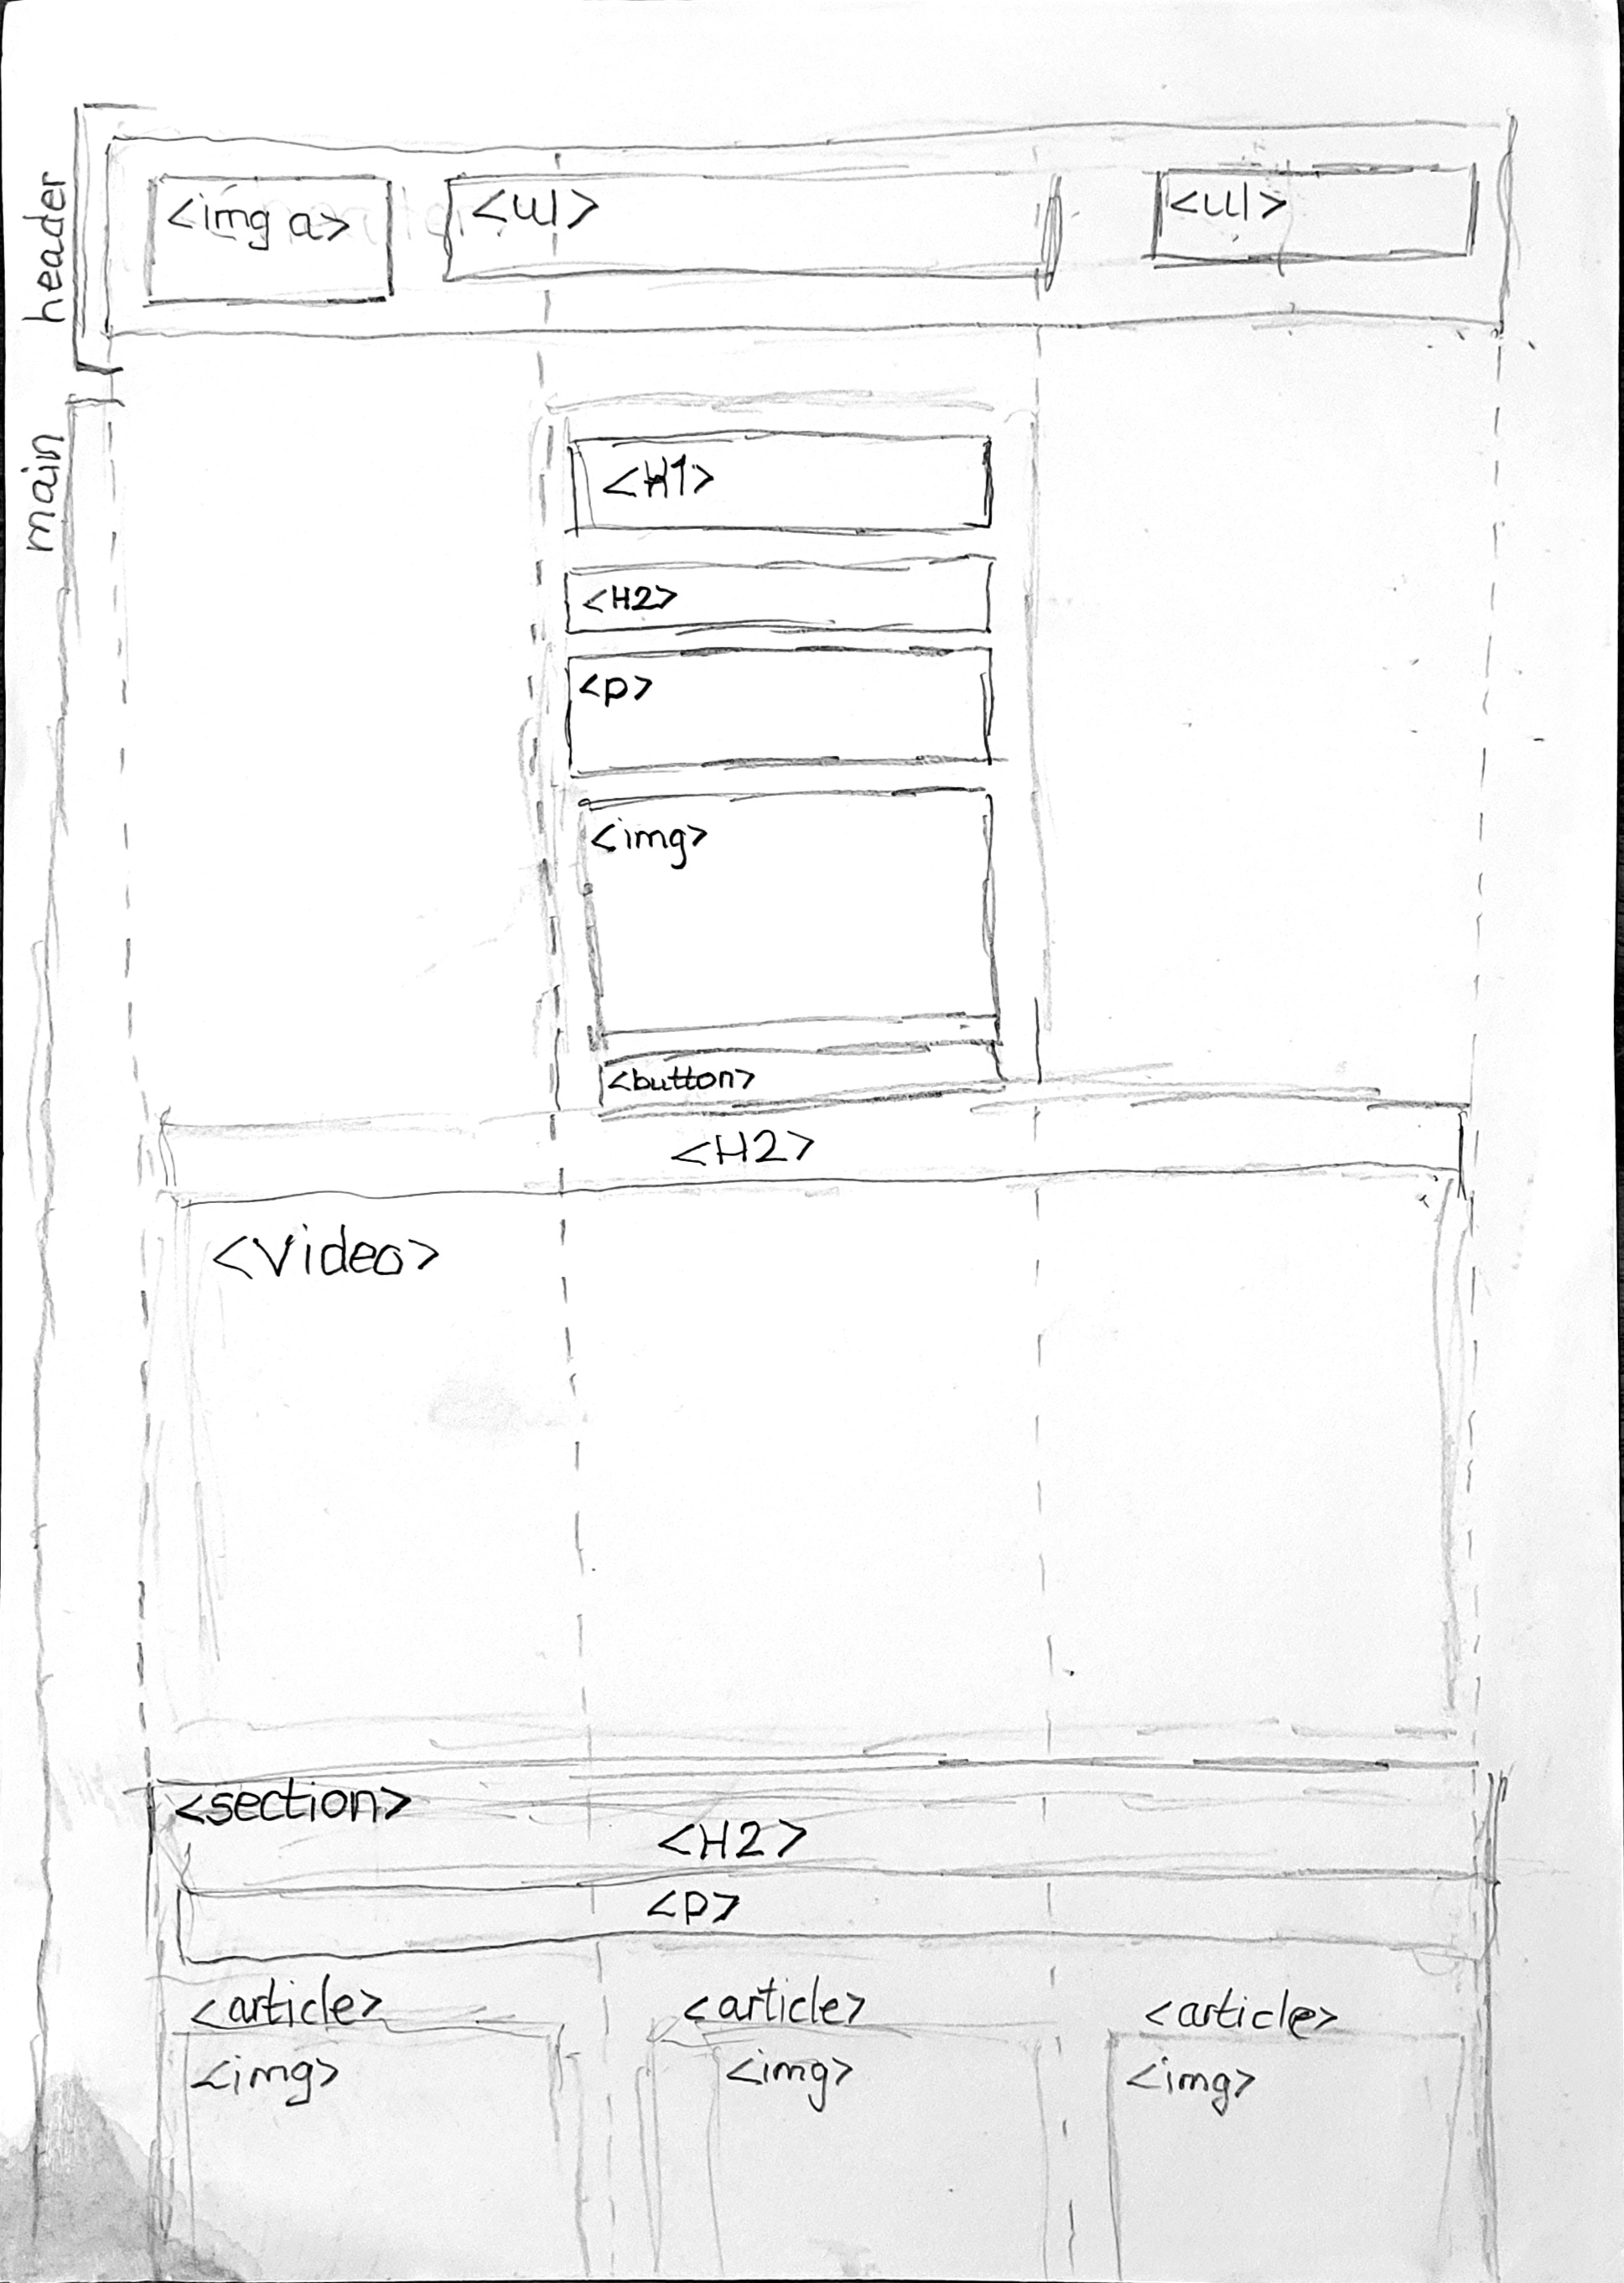 header
<img a>
<ul>
<ul>
main
<H1>
<H2>
<p>
<img>
<button>
<H2>
<Video>
<section>
<H2>
<p>
<article>
<article>
<article>
<img>
<img>
<img>